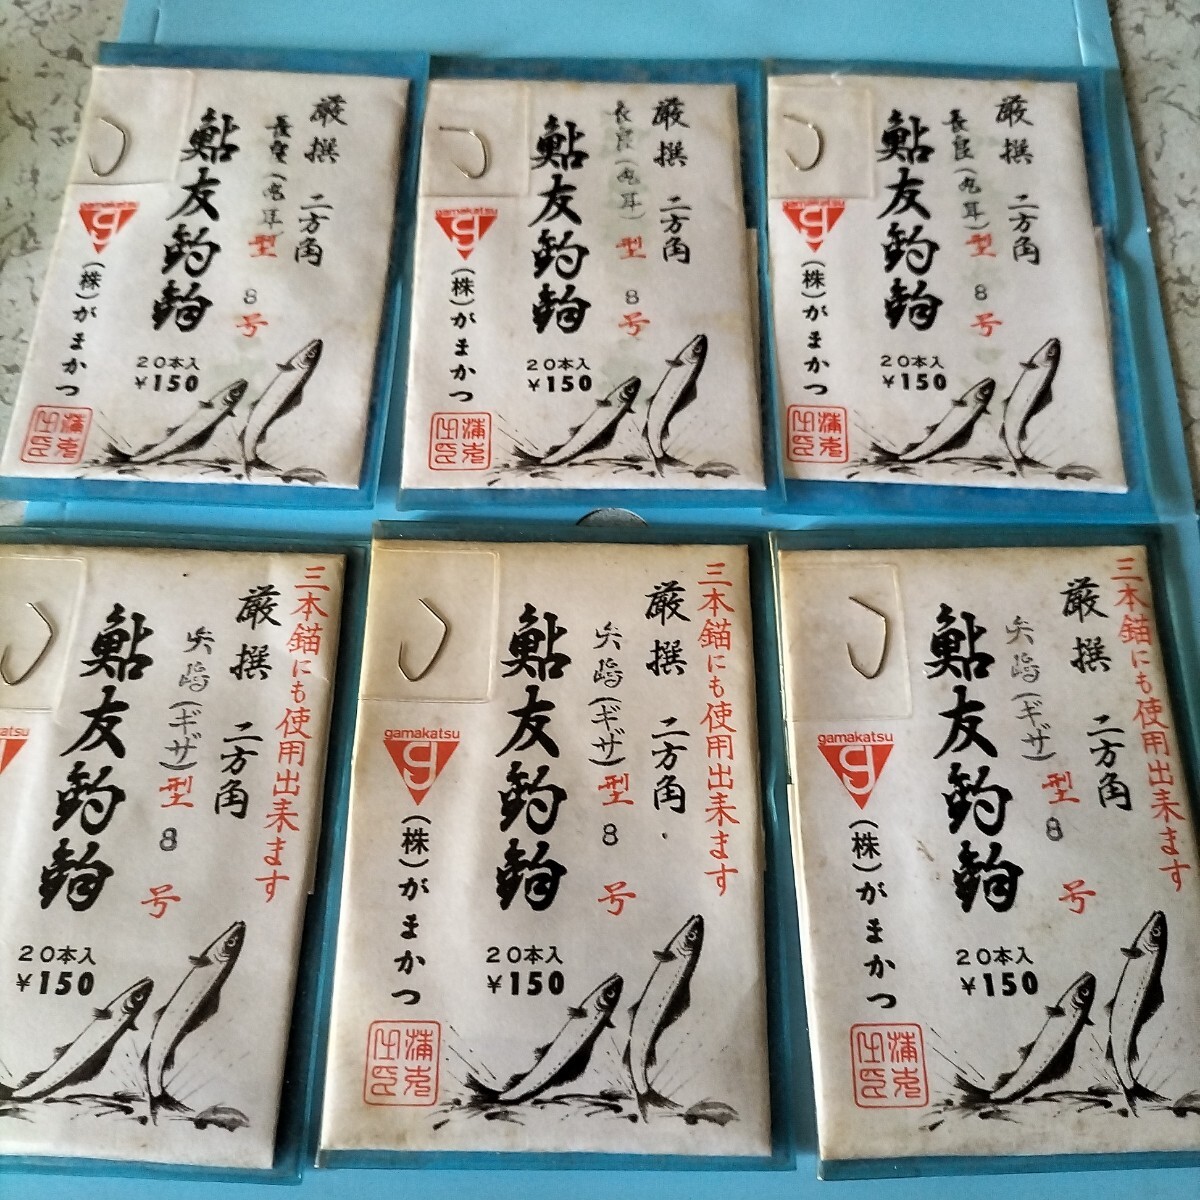 厳撰 二方角
長良(丸耳)型 8号
鮎友釣鈎
20本入
¥150
gamakatsu
(株)がまかつ
厳撰 二方角
長良(丸耳)型 8号
鮎友釣鈎
20本入
¥150
gamakatsu
(株)がまかつ
厳撰 二方角
長良(丸耳)型 8号
鮎友釣鈎
20本入
¥150
gamakatsu
(株)がまかつ
三本錨にも使用出来ます
厳撰 二方角
矢嶋(ギザ)型 8号
鮎友釣鈎
20本入
¥150
makatsu
三本錨にも使用出来ます
厳撰 二方角
矢嶋(ギザ)型 8号
鮎友釣鈎
20本入
¥150
gamakatsu
(株)がまかつ
三本錨にも使用出来ます
厳撰 二方角
矢嶋(ギザ)型 8号
鮎友釣鈎
20本入
¥150
gamakatsu
(株)がまかつ